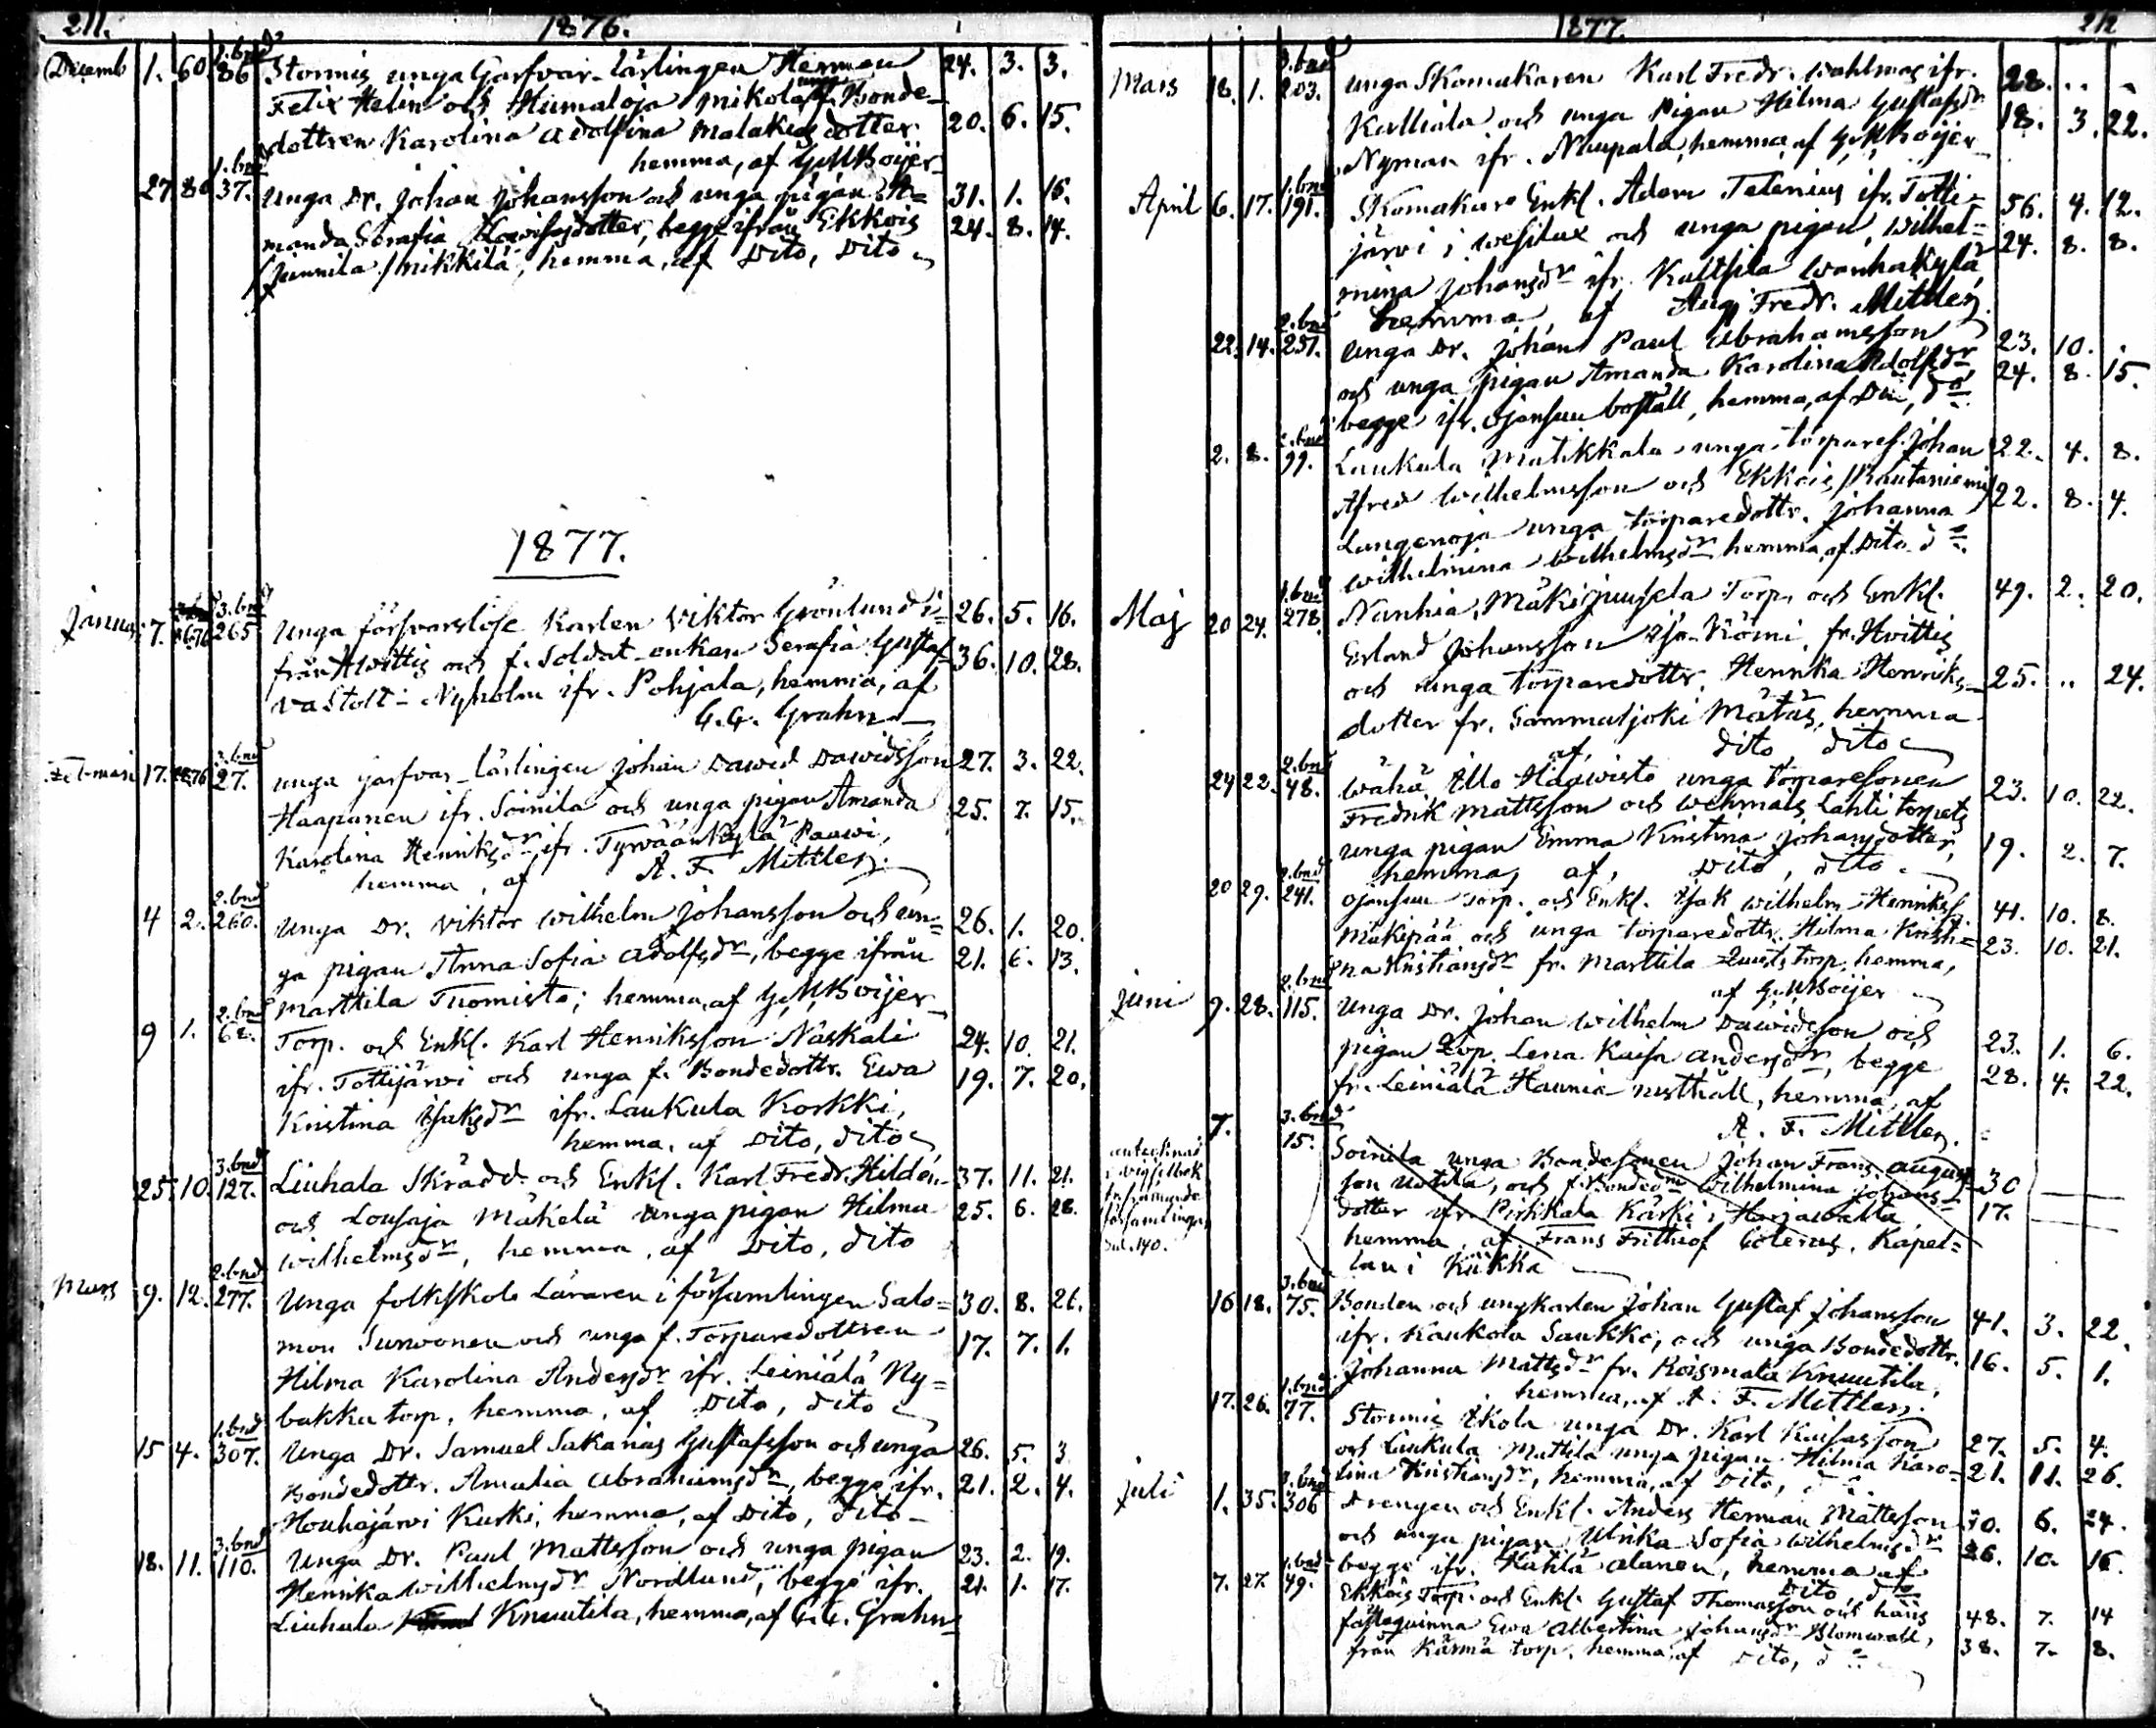 211. 1876.
Decemb 1. 60. 1. bnd 86 Stormis unga Garfvar-lärlingen Herman 24. 3. 3.
Felix Helin och Humaloja Mikola unga f. Bonde-
dottren Karolina Adolfina Malakias dotter 20. 6. 15.
hemma, af G. M. Boijer
27. 80 1. bnd 37. Unga Dr. Johan Johansson och unga pigan A= 31. 1. 15.
manda Serafia Lovisasdotter, begge ifrån Ekkois 24. 8. 14.
/Jinnila/ Nikkilä, hemma, af Dito, Dito
1877.
Janua 7. 3. bnd 265 Unga försvarslöse Karlen Viktor Grönlund i= 26. 5. 16.
från Hvittis och f. Soldat-enkan Serafia Gustaf- 36. 10. 28.
va Stolt- Nyholm ifr. Pohjala, hemma, af
G. G. Grahn
17. 3. bnd 27. unga garfvar-lärlingen Johan David Davidsson 27. 3. 22.
Haapanen ifr. Soinila och unga pigan Amanda 25. 7. 15.
Karolina Henriksdr ifr. Tyrväänkylä Paavi,
hemma, af A. F. Mittler.
4 2. 2. bnd 260. Unga Dr. Viktor Wilhelm Johansson och un= 26. 1. 20.
ga pigan Anna Sofia Adolfsdr, begge ifrån 21. 6. 13.
Marttila Tuomisto; hemma, af G. M. Boijer
9 1. 2. bnd 68. Torp. och Enkl. Karl Henriksson Näskali 24. 10. 21.
ifr. Tottijärvi och unga f. Bondedottr. Ewa 19. 7. 20.
Kristina Isaksdr ifr. Laukula Korkki,
hemma, af Dito, dito
25. 10. 3. bnd 127. Liuhala Skrädd. och Enkl. Karl Fredr. Hildén 37. 11. 21.
och Lousaja Mäkelä unga pigan Hilma 25. 6. 28.
Wilhelmsdr, hemma, af Dito, dito
Mars 9. 12. 2. bnd 277. Unga folkskole Läraren i församlingen Salo= 30. 8. 26.
mon Survonen och unga f. Torparedottren 17. 7. 1.
Hilma Karolina Andersdr ifr. Leiniälä Ny=
bakka torp, hemma, af Dito, dito
15 4. 1. bnd 307. Unga Dr. Samuel Sakarias Gustafsson och unga 26. 5. 3
Bondedottr. Amalia Abrahamsdr, begge ifr. 21. 2. 4.
Houhajärvi Kurki, hemma, af Dito, dito
18. 11. 3. bnd 110. Unga Dr. Paul Mattsson och unga pigan 23. 2. 19.
Henrika Wilhelmsdr Nordlund, begge ifr. 21. 1. 17.
Liuhala Knuutila, hemma, af G. G. Grahn
1877. 212
Mars 18. 1. 3. bnd 203. unga Skomakaren Karl Fredr. Wahlman ifr. 28. „ „
Kalliala och unga Pigan Hilma Gustafsdr 18. 3. 22.
Nyman ifr. Nuupala, hemma, af G. M. Boijer
April 6. 17. 1. bnd 191. Skomakare Enkl. Adam Telenius ifr. Totti- 56. 4. 12.
järvi i Wesilax och unga pigan, Wilhel= 24. 8. 8.
mina Johansdr ifr. Kaltsila Wanhakylä
hemma, af Aug. Fredr. Mittler.
22. 14. 2. bnd 257. Unga Dr. Johan Paul Abrahamsson 23. 10. .
och unga pigan Amanda Karolina Adolfsdr, 24. 8. 15.
begge ifr. Ojansuu boställ, hemma, af Dit, do
2. 8. 2. bnd 99. Laukula Matikkala unga torpares. Johan 22. 4. 8.
Alfred Wilhelmsson och Ekkois /Rautaniemi/ 22. 8. 4.
Langenoja unga torparedottr. Johanna
Wilhelmina Wilhelmsdr hemma, af Dito do
Maj 20 24. 1. bnd 278. Nanhia, Mäkijuusela Torp. och Enkl. 49. 2. 20.
Erland Johansson fr. Hvittis
och unga torparedottr. Henrika Henriks- 25. „ 24.
dotter fr. Sammaljoki Mätäs, hemma
af, Dito, dito
24 22. 2. bnd 48. Wähä Illo Haavisto unga torparesonen 23. 10. 22.
Fredrik Mattsson och Wehmais Lahti torpets
unga pigan Emma Kristina Johansdotter, 19. 2. 7.
hemma, af, Dito, dito
20 29. 2. bnd 241. Ojansuu torp. och Enkl. Isak Wilhelm Henrikss. 41. 10. 8.
Mäkipää och unga torparedottr. Hilma Kristi= 23. 10. 21.
na Kristiansdr fr. Marttila torp, hemma,
af G. M. Boijer
Juni 9. 28. 2. bnd 115. Unga Dr. Johan Wilhelm Davidsson och 23. 1. 6.
pigan Lena Kaisa Andersdr, begge 28. 4. 22.
fr. Leiniälä Haunia rusthåll, hemma, af
A. F. Mittler.
7. 3. bnd 15. Soinila unga Bondesonen Johan Frans August- 30
son Uotila, och f. Bondedtr Wilhelmina Johans- 17.
dotter ifr. Pirkkala Kärki i Harjavalta
hemma, af Frans Frithiof Kapel=
lan i Kiikka
i vigselbok
främmande
församlingar
16 18. 3. bnd 75. Bonden och ungkarlen Johan Gustaf Johansson 41. 3. 22.
ifr. Kaukola Saukko, och unga Bondedottr. 16. 5. 1.
Johanna Mattsdr fr. Roismala Knuutila,
hemma, af A. F. Mittler.
17. 26. 1. bnd 77. Stormis Ikola unga Dr. Karl Kaisasson 27. 5. 4.
och Liukula Mattila unga pigan Hilma Karo= 21. 11. 26.
lina Kristiansdr, hemma, af Dito, do
Juli 1. 35. 306 Drengen och Enkl. Anders Herman Mattsson 30. 6. 24.
och unga pigan Ulrika Sofia Wilhelmsdr 26. 10. 16.
begge ifr. Kahila Alanen, hemma af
Dito do
7. 27. 1. bnd 49. Ekkois Torp. och Enkl. Gustaf Thomasson och hans 48. 7. 14
fästeqvinna Ewa Albertina Johansdr Blomwall, 38. 7. 8.
från Kärmä torp, hemma, af Dito, do